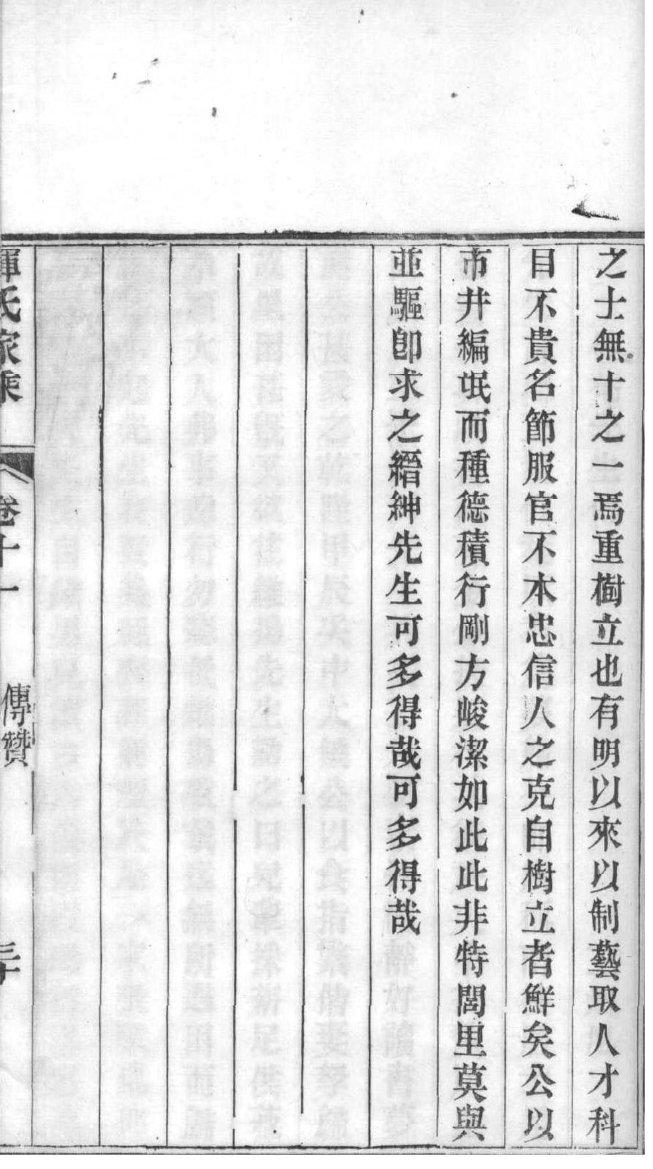 之士無十之一焉重樹立也有明以來以制藝取人才科
目不貴名節服官不本忠信人之克自樹立者鮮矣公以
市井編氓而種德積行剛方峻潔如此此非特閭里莫與
並驅卽求之縉紳先生可多得哉可多得哉
惲氏家乘
卷十一
傳贊